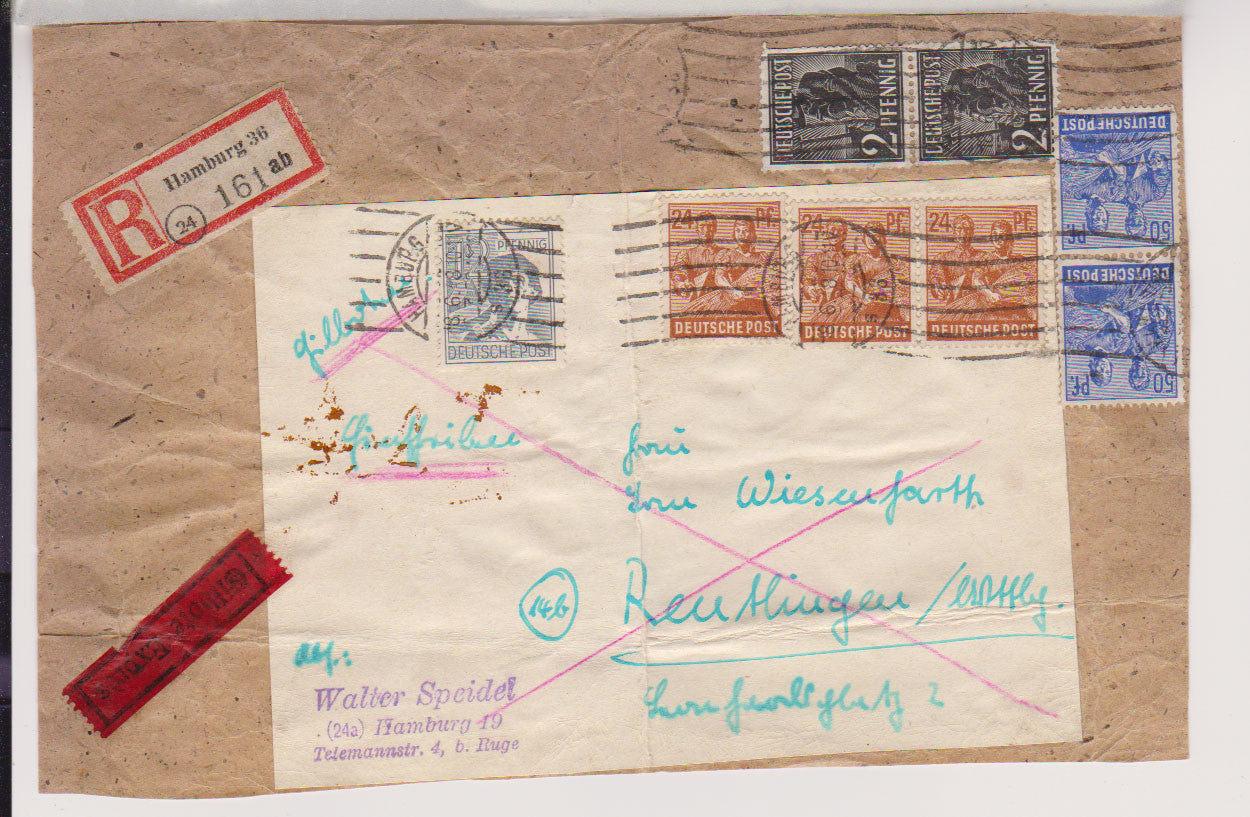 DEUTSCHE POST
2 PFENNIG
DEUTSCHE POST
2 PFENNIG
DEUTSCHE POST
50 Pf.
DEUTSCHE POST
50 Pf.
R
Hamburg 36
(24) 161 ab
PFENNIG
DEUTSCHE POST
24 Pf.
DEUTSCHE POST
24 Pf.
DEUTSCHE POST
24 Pf.
DEUTSCHE POST
HAMBURG
Eilbote
Einschreiben
Eilbote
Exprès
Wiesenfarth
14b
Reutlingen / Wttbg.
2
Abs.:
Walter Speidel
(24a) Hamburg 19
Telemannstr. 4, b. Ruge